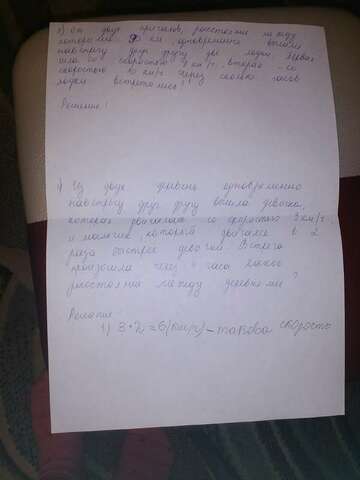 От двух причалов, расстояние между
которыми 90 км, одновременно вышли
навстречу друг другу две лодки. Первая
шла со скоростью 8 км/ч, вторая - со
скоростью 10 км/ч. Через сколько часов
лодки встретились?
Решение:
Из двух деревень одновременно
навстречу друг другу вышла девочка,
которая двигалась со скоростью 3 км/ч,
и мальчик, который двигался в 2
раза быстрее девочки. Встреча
произошла через часа какое
расстояние между деревнями?
Решение:
1) 3 · 2 = 6 (км/ч) - такова скорость